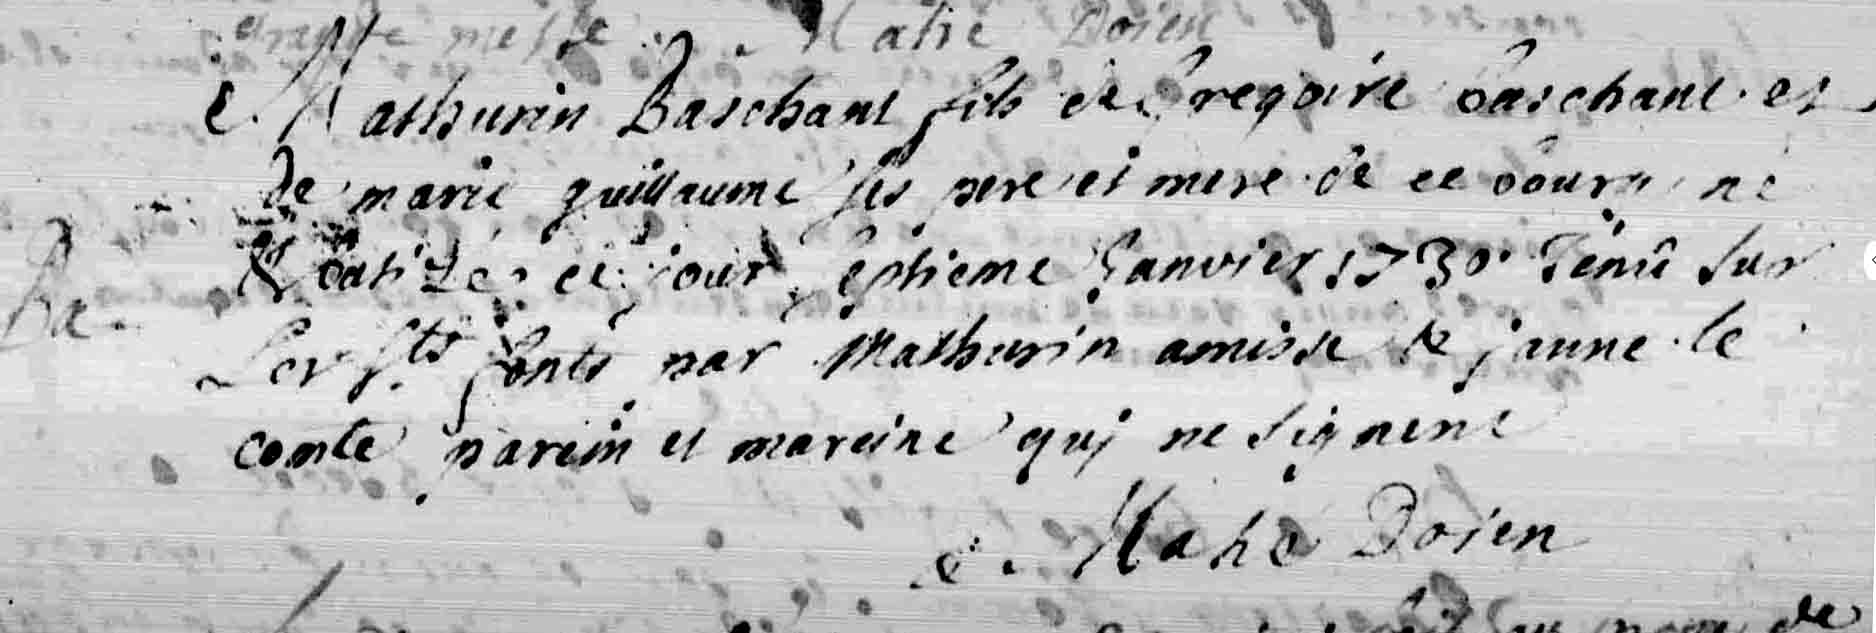 messe Mahé Doien
Mathurin Baschant fils de Gregoire baschant et
de marie guillaume ses pere et mere de ce bourg né
& batizé ce jour septieme Janvier 1730 Tenû sur
Les sts fonts par Mathurin amisse & janne le
conte parein et mareine quj ne signent
Mahé Doien
Ba
de